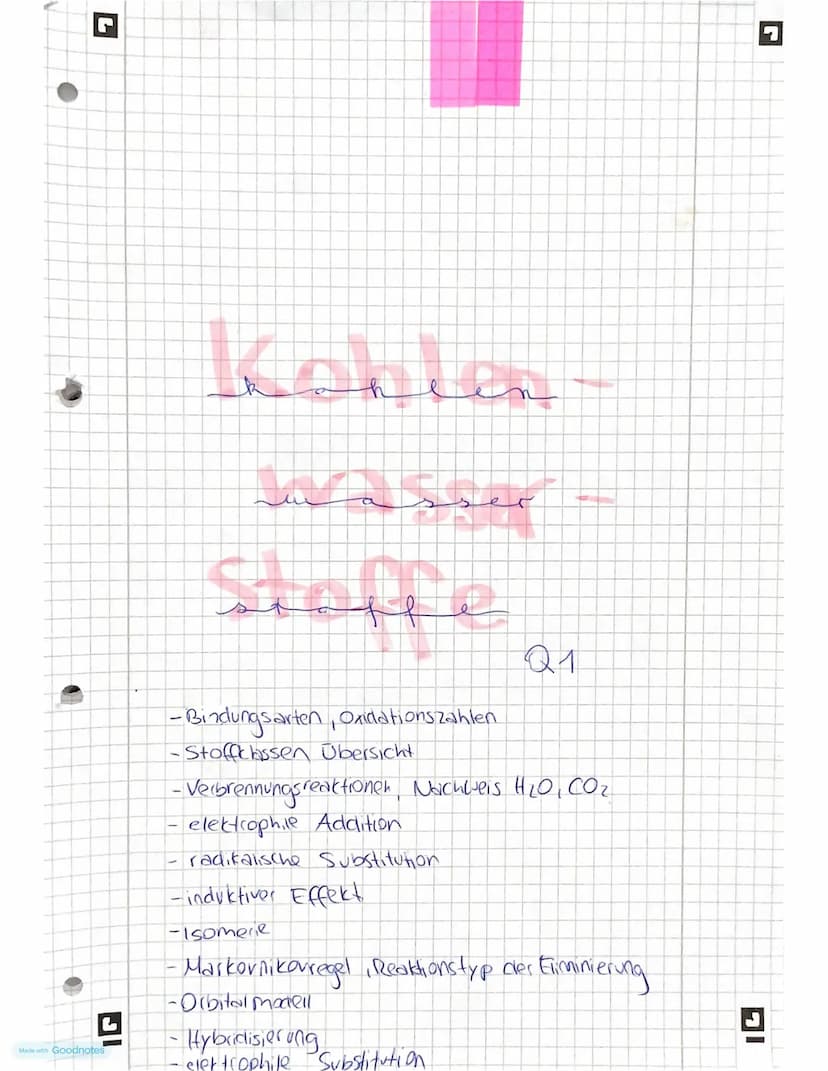 Kohlen-
kohlen
wasser-
wasser
Stoffe
stoffe
Q1
- Bindungsarten, Oxidationszahlen
- Stoffklassen Übersicht
- Verbrennungsreaktionen, Nachweis H2O, CO2
- elektrophile Addition
- radikalische Substitution
- induktiver Effekt
- Isomerie
- Markovnikovregel, Reaktionstyp der Eliminierung
- Orbitalmodell
- Hybridisierung
- elektrophile Substitution
Made with Goodnotes